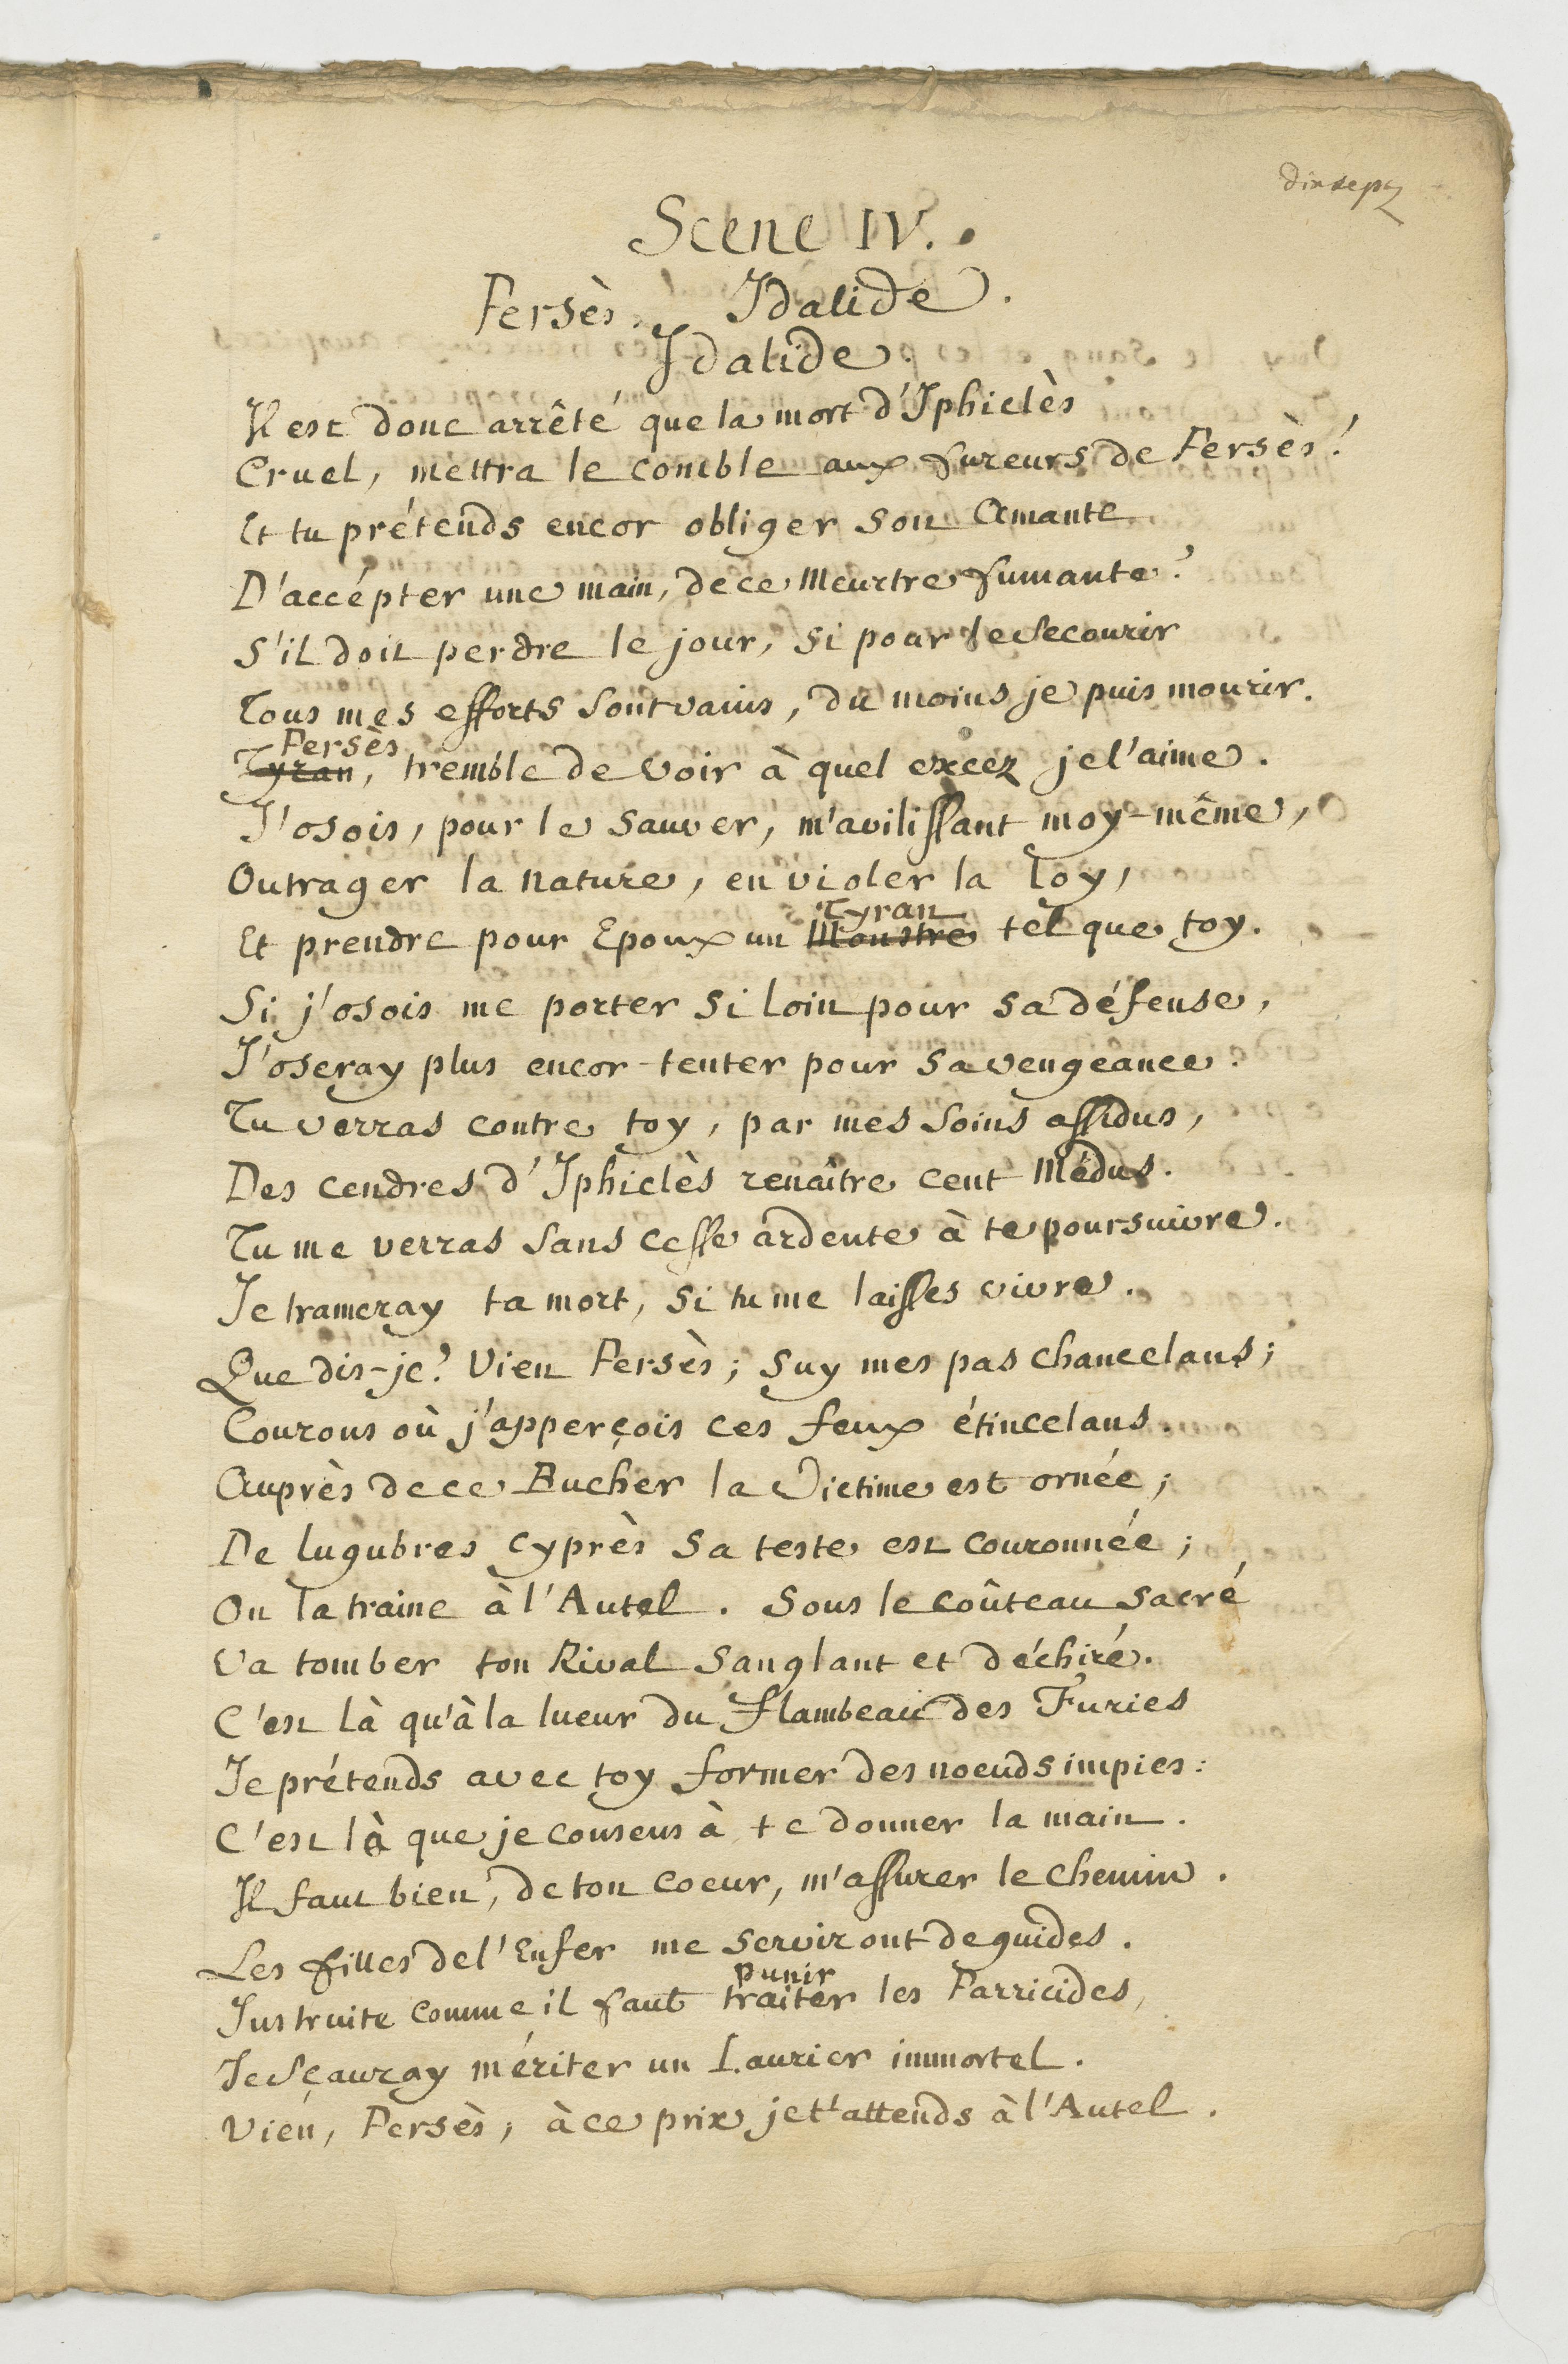 dix sept
Scene IV.
Persès, Idalide.
Idalide.
Il est donc arrêté que la mort d'Iphiclès
Cruel, mettra le comble aux fureurs de Persès!
Et tu prétends encor obliger son Amante
D'accépter une main, de ce Meurtre fumante?
S'il doit perdre le jour, si pour le secourir
Tous mes efforts sont vains, du moins je puis mourir.
Persès
Tyran, tremble de voir à quel excez je l'aime.
J'osois, pour le sauver, m'avilissant moy-même,
Outrager la Nature, en violer la Loy,
Tyran
Et prendre pour Epoux un Monstre tel que toy.
Si j'osois me porter si loin pour sa défense,
J'oseray plus encor tenter pour sa vengeance.
Tu verras contre toy, par mes soins assidus,
Des cendres d'Iphiclès renaître cent Médus.
Tu me verras sans cesse ardente à te poursuivre.
Je trameray ta mort, si tu me laisses vivre.
Que dis-je? Vien Persès; suy mes pas chancelans;
Courons où j'apperçois ces feux étincelans.
Auprès de ce Bucher la Victime est ornée;
De lugubres cyprès sa teste est couronnée;
On la traine à l'Autel. Sous le coûteau sacré
Va tomber ton Rival sanglant et déchiré.
C'est là qu'à la lueur du flambeau des Furies
Je prétends avec toy former des noeuds impies:
C'est là que je consens à te donner la main.
Il faut bien, de ton coeur, m'assurer le chemin.
Les filles de l'Enfer me serviront de guides.
punir
Instruite comme il faut traiter les Parricides,
Je sçauray mériter un Laurier immortel.
Vien, Persès, à ce prix je t'attends à l'Autel.